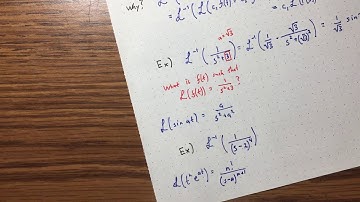 why?
= ℒ⁻¹(ℒ(c₁f(t) =
= c₁ ℒ
a=√3
Ex) ℒ⁻¹(1/(s²+3)) = ℒ⁻¹(1/√3 · √3/(s²+(√3)²)) = 1/√3 sin
What is f(t) such that
ℒ(f(t)) = 1/(s²+3) ?
ℒ(sin at) = a/(s²+a²)
Ex) ℒ⁻¹(1/(s-2)⁴)
ℒ(tⁿ eᵃᵗ) = n!/(s-a)ⁿ⁺¹